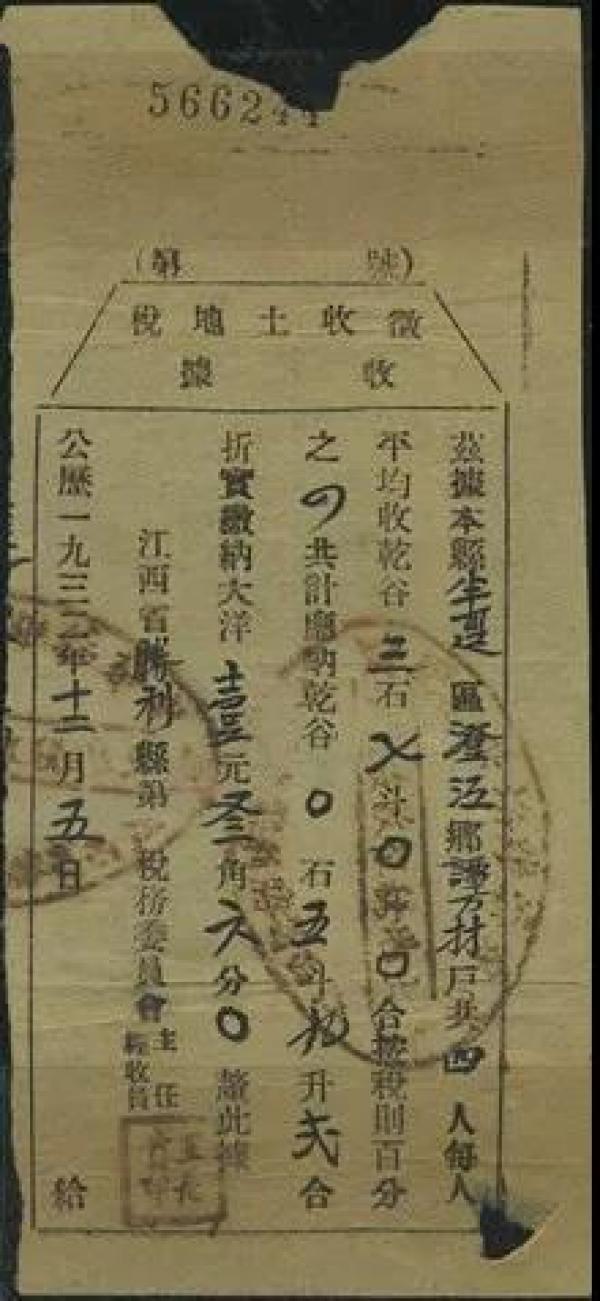 566244
(第 號)
徵收土地稅
收據
茲據本縣 區澄江鄉 方材戶共四人每人
平均收乾谷三石七斗〇升〇合按稅則百分
之四共計應納乾谷〇石五斗九升弍合
折實繳納大洋壹元叁角六分〇釐此據
江西省勝利縣第 稅務委員會主任
經收員
公歷一九三二年十二月五日 給